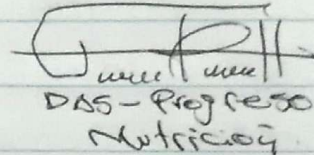 DAS - Progreso
Nutrición